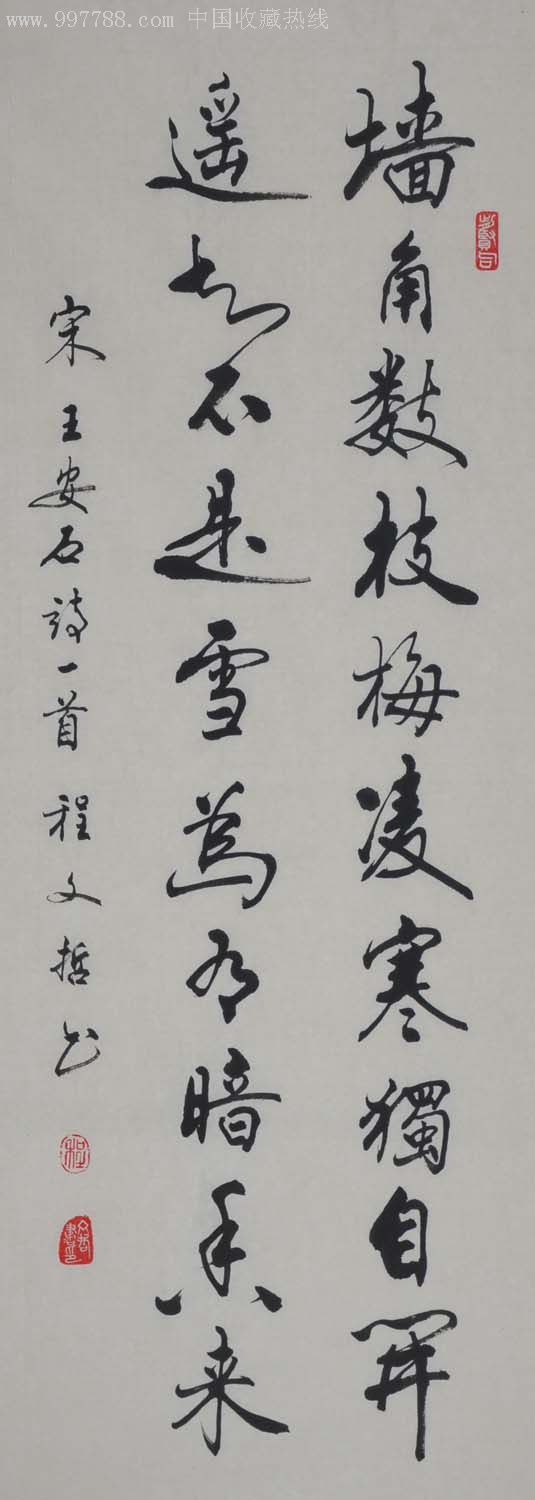 www.997788.com 中国收藏热线
墙角数枝梅凌寒獨自開
遥知不是雪為有暗香来
宋王安石詩一首 程文哲书
程